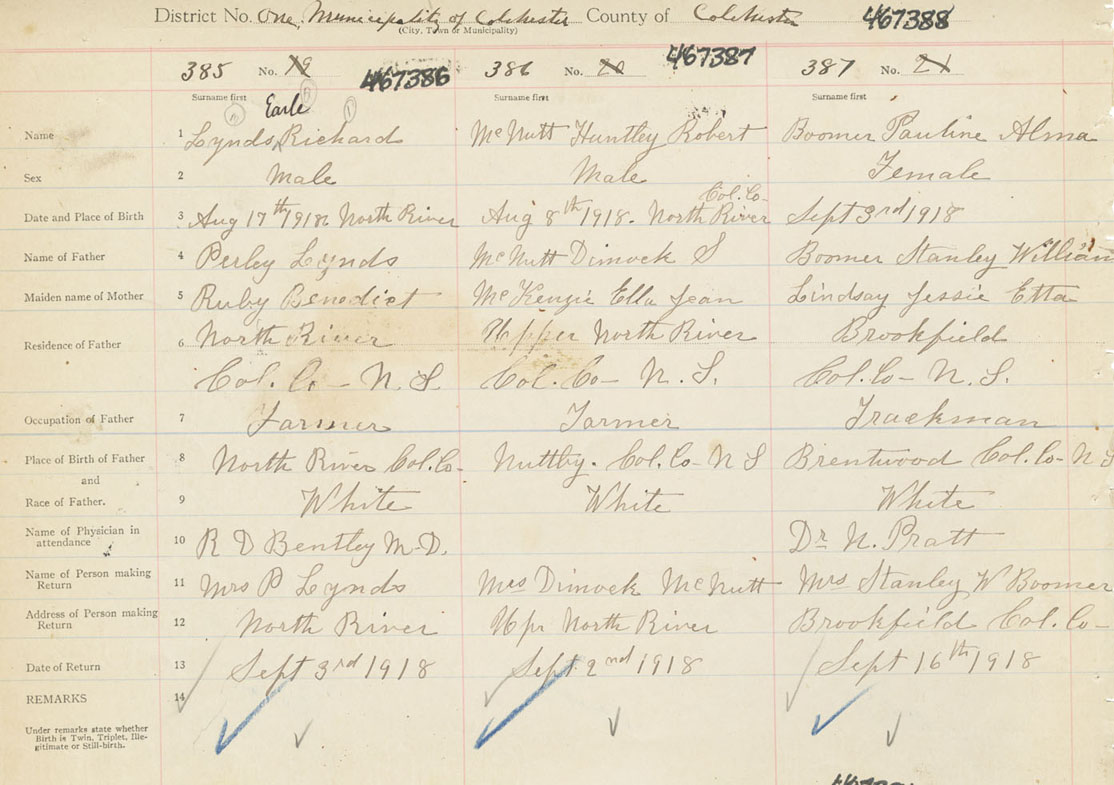 District No. One, Municipality of Colchester County of Colchester 467388
(City, Town or Municipality)
385 No. 19 467386 386 No. 20 467387 387 No. 21
Surname first Surname first Surname first
Earle
Name 1 Lynds Richard McNutt Huntley Robert Boomer Pauline Alma
Sex 2 Male Male Female
Col. Co-
Date and Place of Birth 3 Aug 17th 1918. North River Aug 8th 1918. North River Sept 3rd 1918
Name of Father 4 Perley Lynds McNutt Dimock S Boomer Stanley William
Maiden name of Mother 5 Ruby Benedict McKenzie Ella Jean Lindsay Jessie Etta
Residence of Father 6 North River Upper North River Brookfield
Col. Co- N. S Col. Co- N. S. Col. Co- N. S.
Occupation of Father 7 Farmer Farmer Trackman
Place of Birth of Father 8 North River Col. Co- Nuttby. Col. Co- N S Brentwood Col. Co- N S
and
Race of Father. 9 White White White
Name of Physician in attendance 10 R D Bentley M.D. Dr N. Pratt
Name of Person making Return 11 Mrs P Lynds Mrs Dimock McNutt Mrs Stanley W Boomer
Address of Person making Return 12 North River Upr North River Brookfield Col. Co-
Date of Return 13 Sept 3rd 1918 Sept 2nd 1918 Sept 16th 1918
REMARKS 14
Under remarks state whether
Birth is Twin, Triplet, Ille-
gitimate or Still-birth.